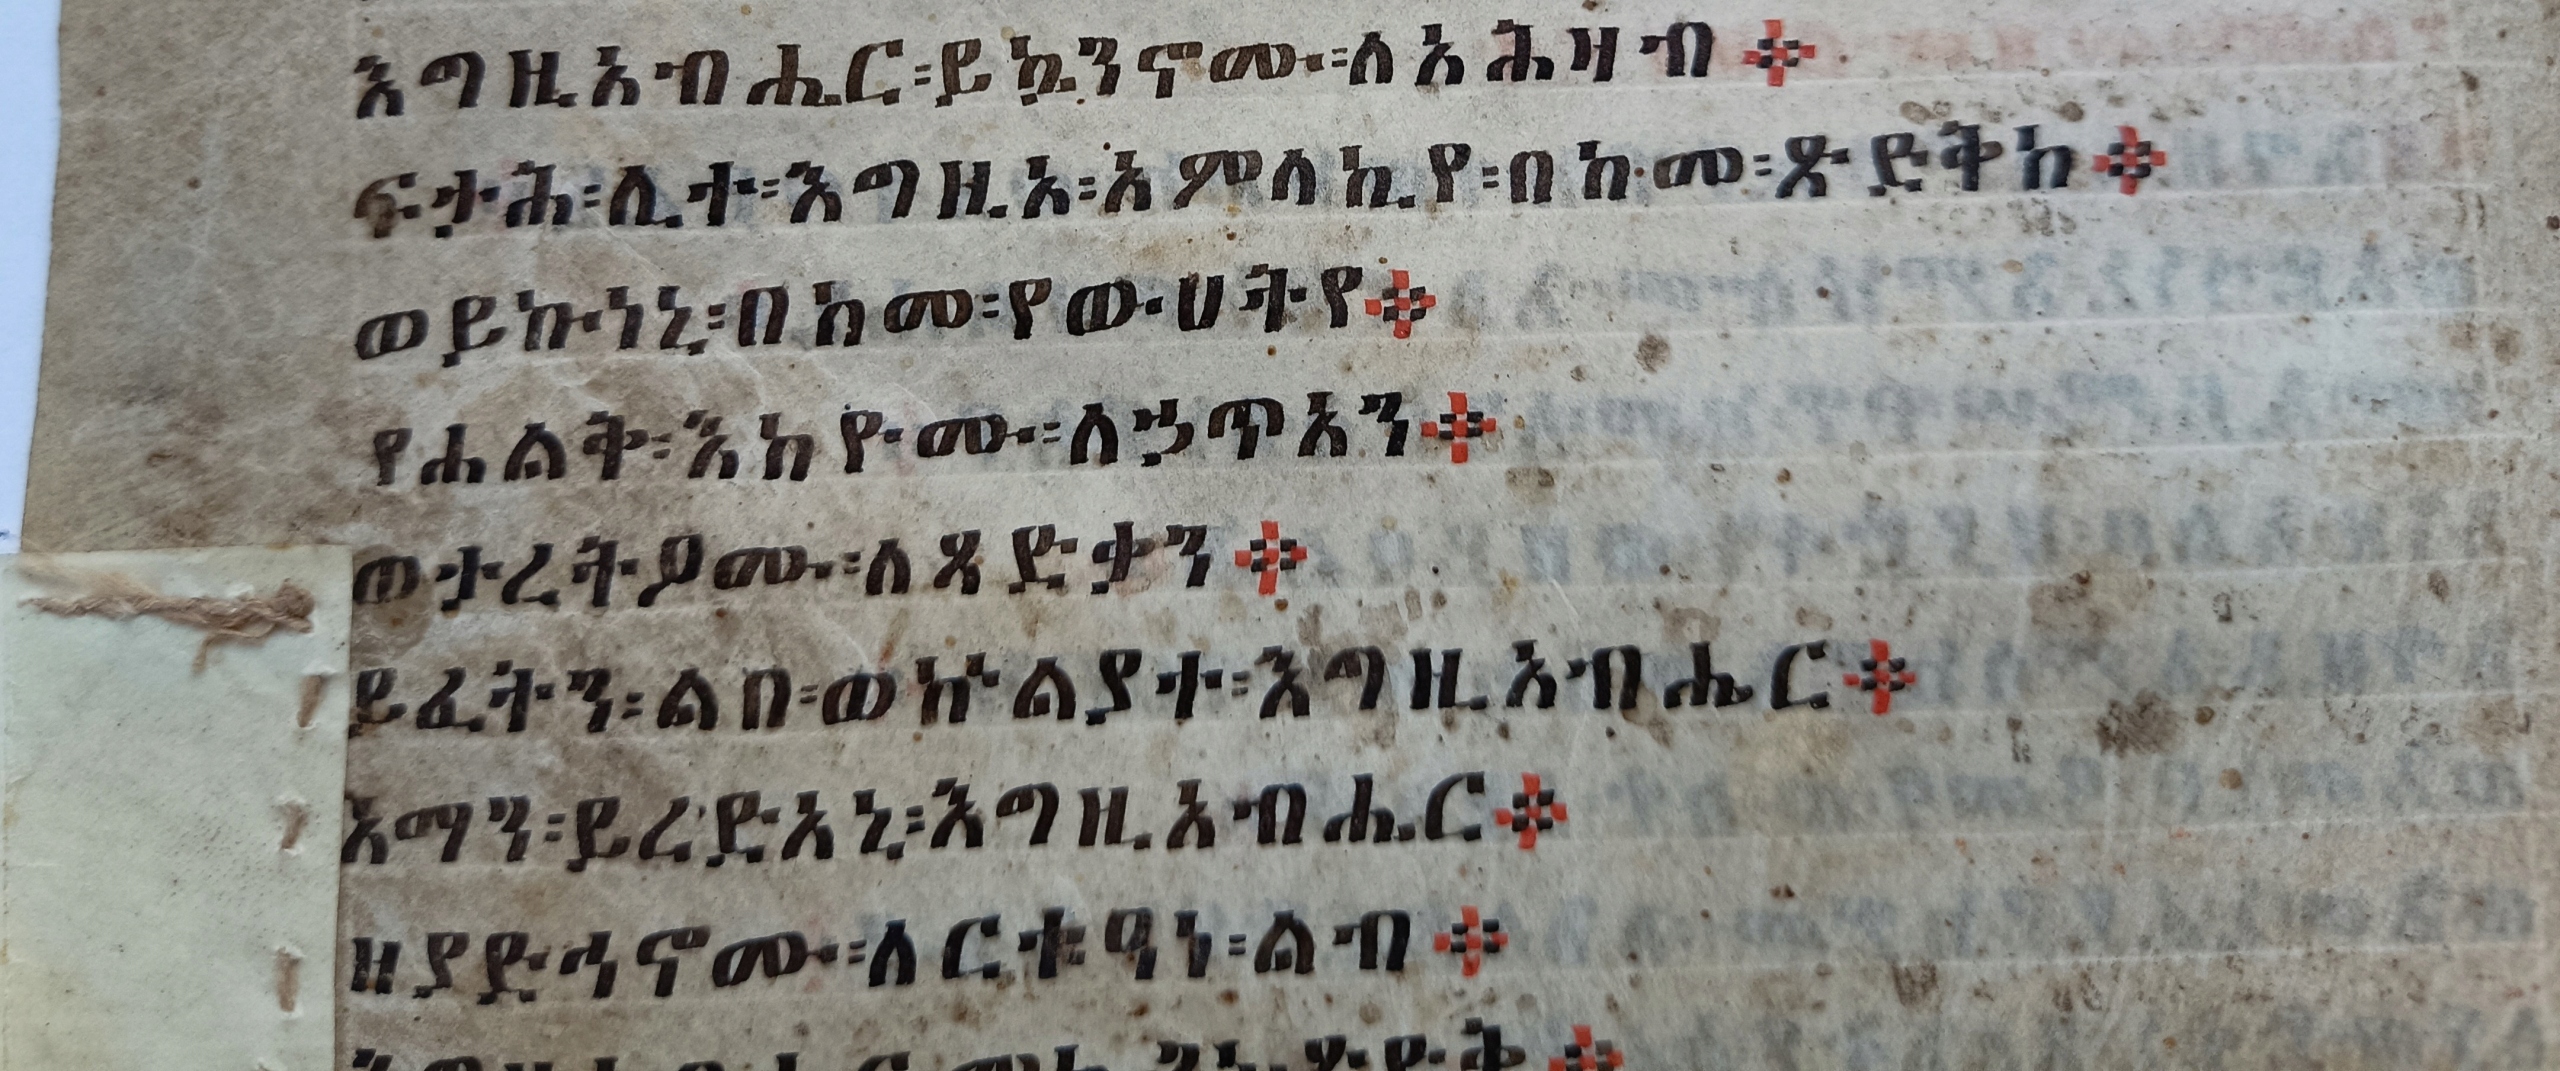 እግዚአብሔር፡ይኴንኖሙ፡ለአሕዛብ፨
ፍታሕ፡ሊተ፡እግዚአ፡አምላኪየ፡በከመ፡ጽድቅከ፨
ወይኩነኒ፡በከመ፡የውሀትየ፨
የሐልቅ፡እከዮሙ፡ለኃጥአን፨
ወታረትዖሙ፡ለጻድቃን፨
ይፈትን፡ልበ፡ወኵልያተ፡እግዚአብሔር፨
አማን፡ይረድአኒ፡እግዚአብሔር፨
ዘያድኅኖሙ፡ለርቱዓነ፡ልብ፨